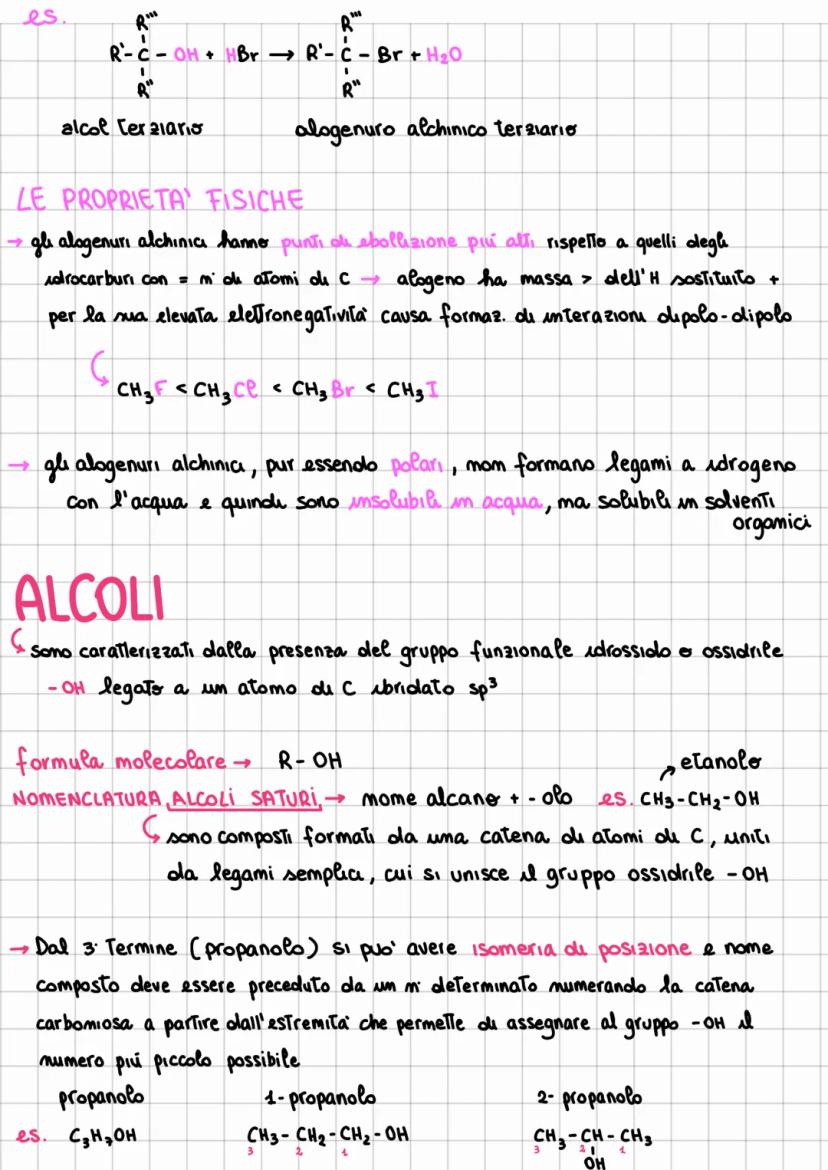 es.
R'''
R'- C - OH + HBr → R'- C - Br + H₂O
R''
alcol terziario alogenuro alchinico terziario
LE PROPRIETA' FISICHE
→ gli alogenuri alchinici hanno punti di ebollizione più alti rispetto a quelli degli
idrocarburi con = n° di atomi di C → alogeno ha massa > dell'H sostituito +
per la sua elevata elettronegatività causa formaz. di interazioni dipolo-dipolo
CH₃F < CH₃Cl < CH₃Br < CH₃I
→ gli alogenuri alchinici, pur essendo polari, non formano legami a idrogeno
con l'acqua e quindi sono insolubili in acqua, ma solubili in solventi
organici
ALCOLI
sono caratterizzati dalla presenza del gruppo funzionale idrossido o ossidrile
- OH legato a un atomo di C ibridato sp³
formula molecolare → R- OH
etanolo
NOMENCLATURA ALCOLI SATURI → nome alcano + - olo es. CH₃-CH₂-OH
sono composti formati da una catena di atomi di C, uniti
da legami semplici, cui si unisce il gruppo ossidrile -OH
→ Dal 3° Termine (propanolo) si può avere isomeria di posizione e nome
composto deve essere preceduto da un n° determinato numerando la catena
carboniosa a partire dall'estremità che permette di assegnare al gruppo -OH il
numero più piccolo possibile
propanolo 1-propanolo 2- propanolo
es. C₃H₇OH CH₃- CH₂ -CH₂ - OH CH₃ -CH - CH₃
3 2 1 3 2 1
OH